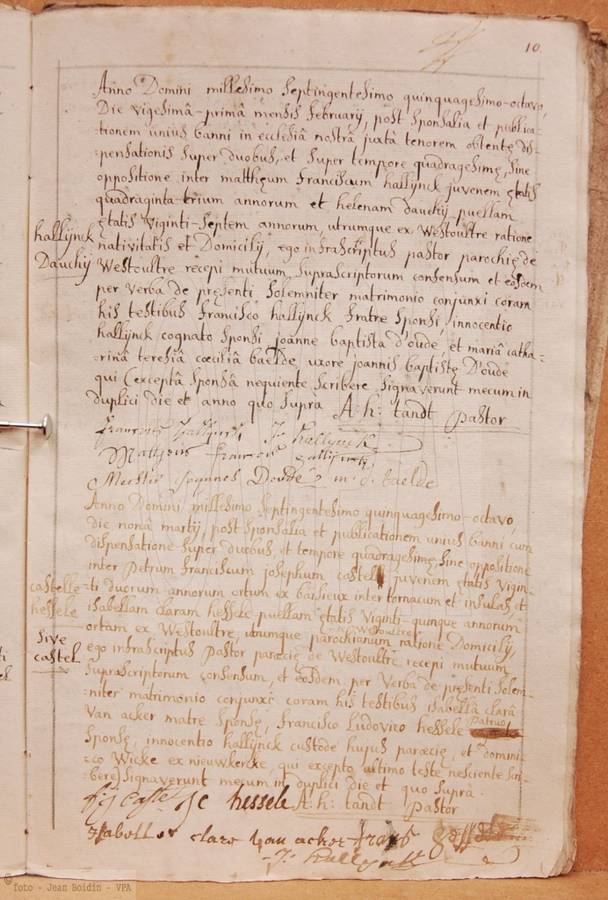 10.
Anno Domini millesimo septingentesimo quinquagesimo-octavo,
Die vigesimâ-primâ mensis february, post sponsalia et publica-
:tionem unius banni in ecclesiâ nostrâ juxta tenorem obtentę dis-
:pensationis super duobus, et super tempore quadragesimę, sine
oppositione inter mattheum franciscum hallijnck juvenem ętatis
quadraginta-trium annorum et helenam dauchij puellam
ętatis viginti-septem annorum, utrumque ex Westoultre ratione
hallijnck
Dauchij
nativitatis et Domicilij, ego infrascriptus pastor parochię de
Westoultre recepi mutuum suprascriptorum consensum et eosdem
per verba de pręsenti solemniter matrimonio conjunxi coram
his testibus francisco hallijnck fratre sponsi, innocentio
hallijnck cognato sponsi joanne baptista d'oude, et mariâ catha-
:rinâ teresiâ cœciliâ baelde uxore joannis baptistę D'oude
qui (exceptâ sponsâ nequiente scribere signaverunt mecum in
duplici die et anno quo suprà A. h: tandt pastor
J. hallijnck
Joannes Doude m. c. t. baelde
Anno Domini millesimo septingentesimo quinquagesimo-octavo,
die nonâ martij, post sponsalia et publicationem unius banni cum
dispensatione super duobus, et tempore quadragesimę, sine oppositione
inter petrum franciscum josephum castel juvenem ętatis vigin-
castelle
hessele
sive
castel
-ti duorum annorum ortum ex baisieux inter tornacum et insulas, et
isabellam claram hessele puellam ętatis viginti-quinque annorum
ortam ex Westoultre, utrumque parochianum Westoultre ratione Domicilij,
ego infrascriptus pastor parœcię de Westoultre recepi mutuum
suprascriptorum consensum, et eosdem per verba de pręsenti solem-
:niter matrimonio conjunxi coram his testibus isabellâ clarâ
Van acker matre sponsę, francisco Ludovico hessele patruo
sponsę, innocentio hallijnck custode hujus parœcię, et domini-
:co Wicke ex nieuwkercke, qui excepto ultimo teste nesciente scri-
:bere) signaverunt mecum in duplici die et quo suprà.
hessele A. h: tandt pastor
clare van acker
©foto - Jean Boidin - VPA